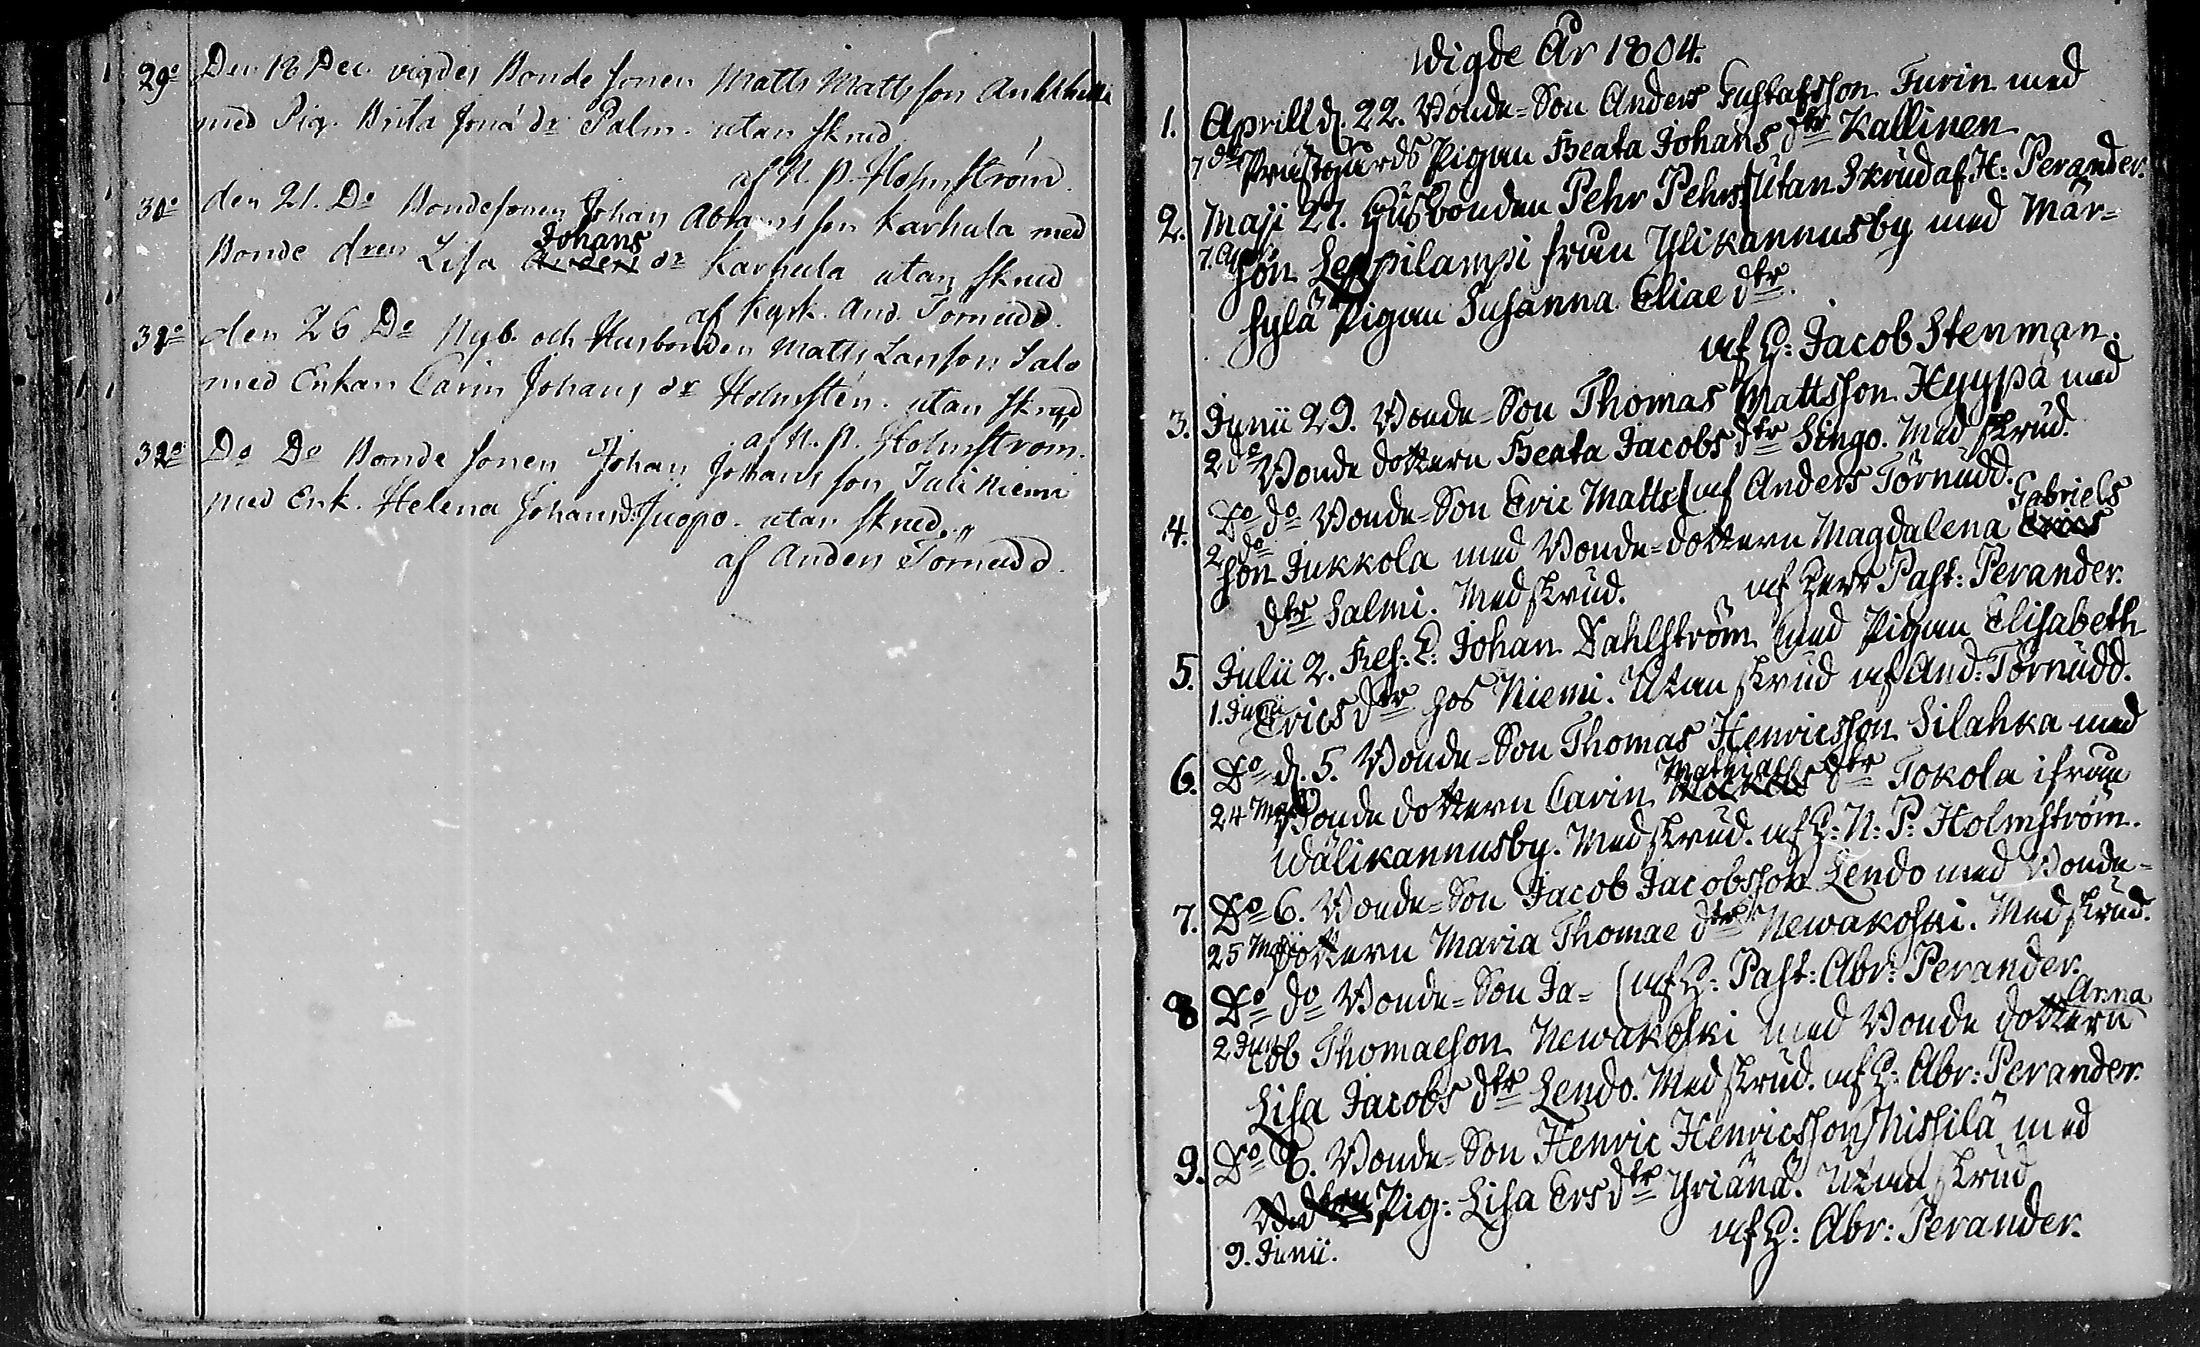 29o Den 18 Dec. vigdes Bonde sonen Matts Matts son
med Pig. Brita Jona dr Palm. utan skrud
af N. P. Holmström.
30o den 21. Do Bondesonen Johan Abrams son Karhula med
Johans
Bonde dren Lisa Anders dr Karhula utan skrud
af Kyrk. And. Törnudd.
31o den 26 Do Nyb. och Husbonden Matts Larsson Salo
med Enkan Carin Johans dr Holmstén. utan skrud
af N. P. Holmström.
32o Do Do Bonde sonen Johan Johans son Jali Niemi
med Enk. Helena Johansd. Juopo. utan skrud.
af Anders Törnudd.
Wigde År 1804.
1. Aprill d. 22. Bonde=Son Anders Gustafsson Turin med
7 do Prästgårds Pigan Beata Johans dtr Kallinen
2. Maji 27. Husbonden Pehr Pehrs (Utan Skrud af H: Perander.
7. Apr. son Leppilampi från Ylikannusby med Mär=
hylä Pigan Susanna Eliae dtr.
af H: Jacob Stenman.
3. Junii 29. Bonde=Son Thomas Mattsson Hyypä med
2 do Bonde dottern Beata Jacobs dtr Singo. Med skrud.
4. Do do Bonde=Son Eric Matts (af Anders Törnudd.
Gabriels
2 do son Jukkola med Bonde=dottern Magdalena Erics
dtr Salmi. Med skrud. af Herr Past: Perander.
5. Julii 2. Res: C: Johan Dahlström med Pigan Elisabeth
1. Junii Erics dtr hos Niemi. Utan skrud af And: Törnudd.
6. Do d. 5. Bonde=Son Thomas Henricsson Silahka med
Mathiae
24 Maji Bonde dottern Carin Mickels dtr Tokola ifrån
Wälikannusby. Med skrud. af H: N: P: Holmström.
7. Do 6. Bonde=Son Jacob Jacobsson Lendo med Bonde=
25 Maji dottern Maria Thomae dtr Newakoski. Med skrud.
8 Do do Bonde=Son Ja= (af H: Past: Abr: Perander.
Anna
2 Junii cob Thomaeson Newakoski med Bonde dottern
Lisa Jacobs dtr Lendo. Med skrud. af H: Abr: Perander.
9. Do 6. Bonde=Son Henric Henricsson Nissilä med
Pig: Lisa Ers dtr Yriänä. Utan skrud
9. Junii. af H: Abr: Perander.